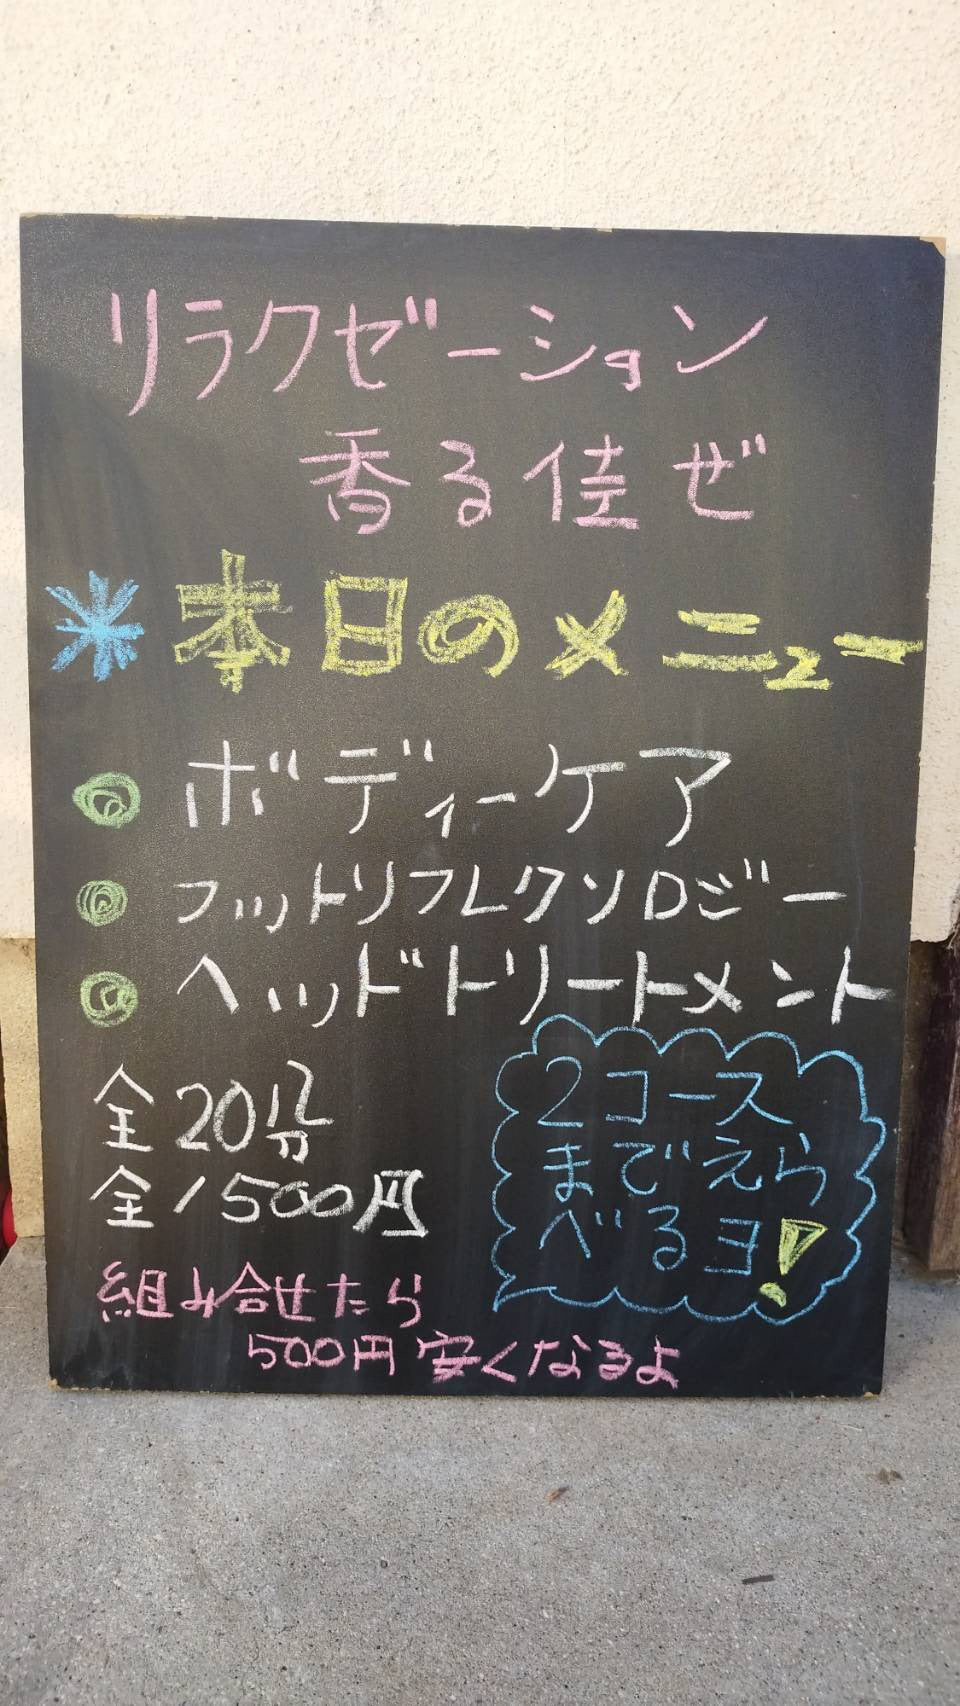 リラクゼーション
香る佳ぜ
*本日のメニュー
ボディーケア
フットリフレクソロジー
ヘッドトリートメント
全20分
全1500円
2コース
までえら
べるヨ!
組み合せたら
500円安くなるよ